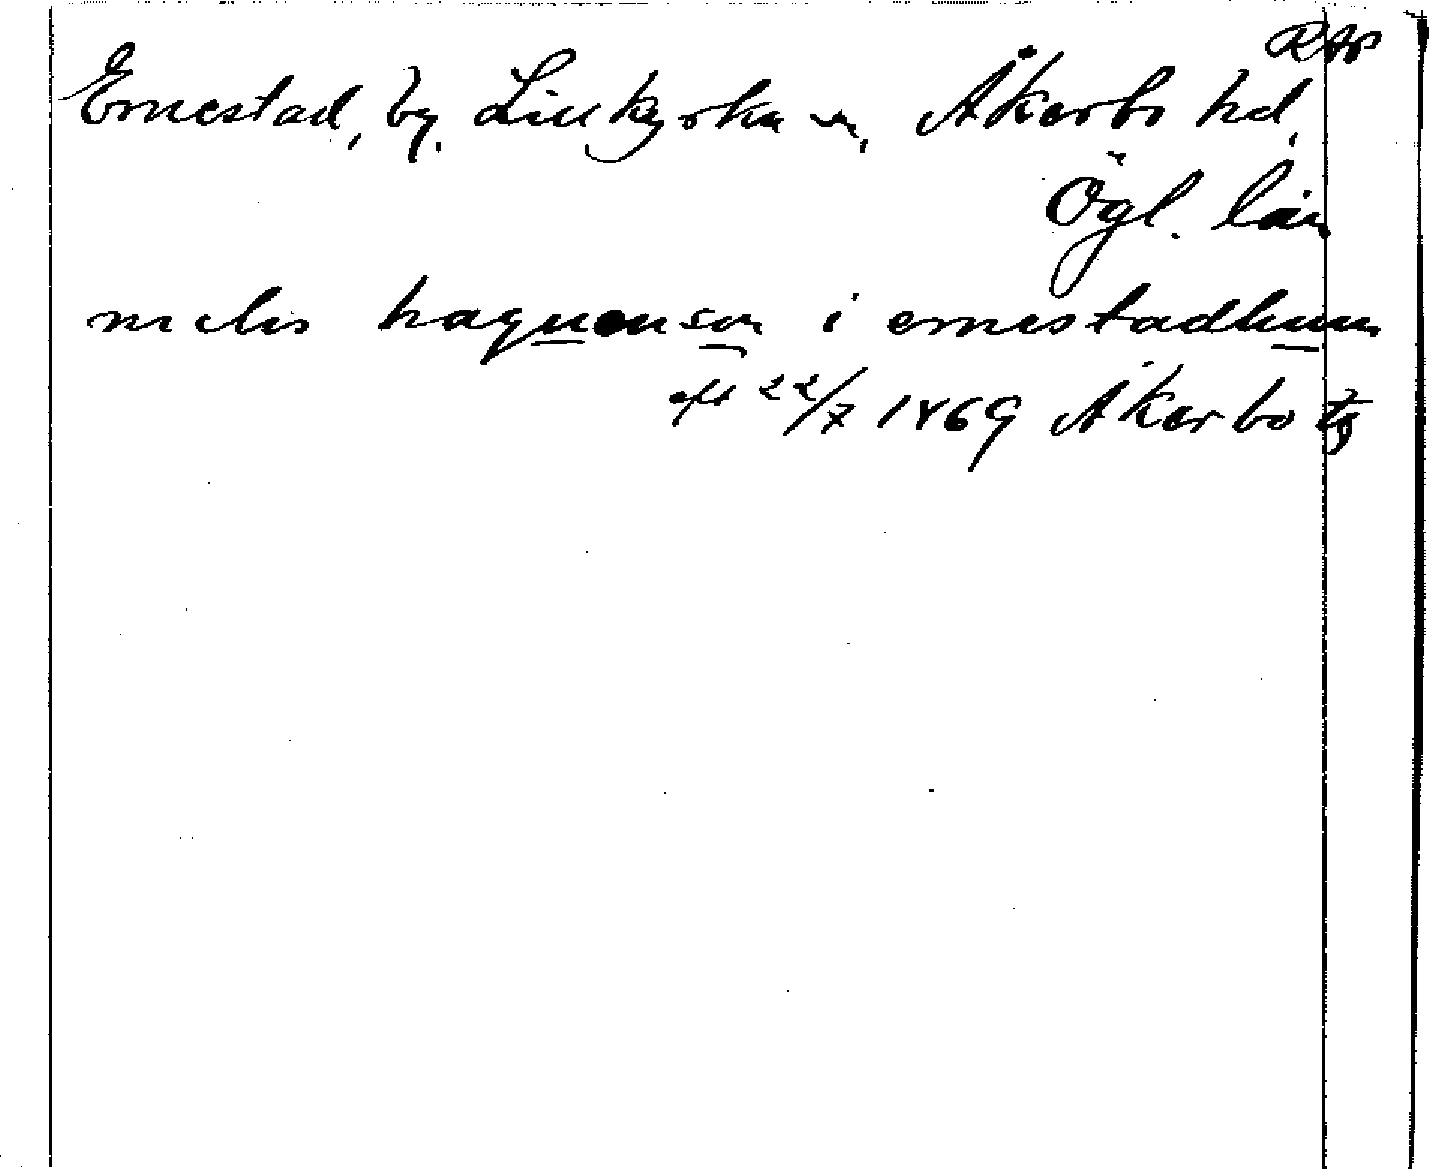 RAP
Ernestad, by, Lillkyrka sn, Åkerbo hd,
Ögl. län
niclis haquonson i ernestadhum
eft 22/7 1469 Åkerbo tg